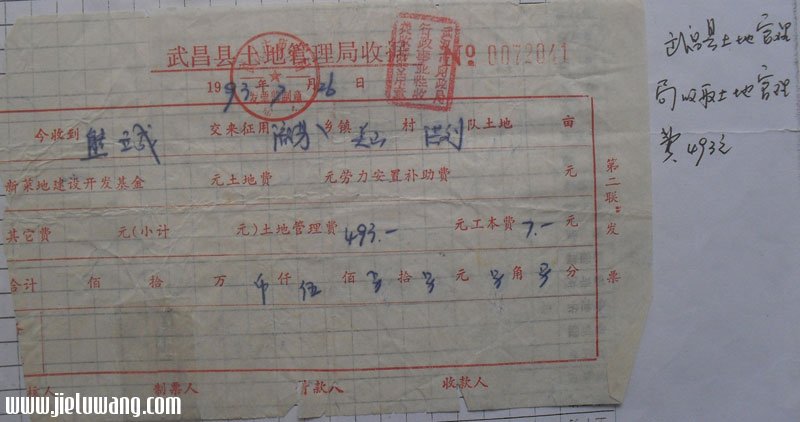 武昌县土地管理局收 No 0072041
1993年 月26日
今收到 熊立武 交来征用 乡镇 村 洪刘 队土地 亩
新菜地建设开发基金 元土地费 元劳力安置补助费 元
其它费 元(小计 元)土地管理费493.- 元工本费7.- 元
合计 佰 拾 万 仟 伍 佰 拾 元 角 分
第二联:发票
核人 制票人 付款人 收款人
武昌县土地管理
局收取土地管理
费493元
www.jieluwang.com